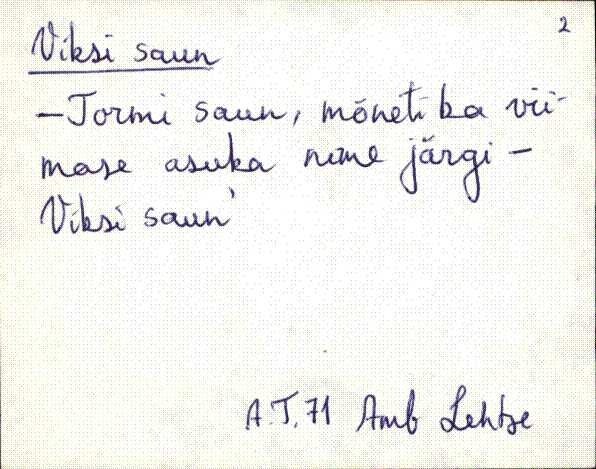 2
Viksi saun
- Tormi saun, mõneti ka vii-
mase asuka nime järgi -
Viksi saun'
A.T. 71 Amb Lehtse